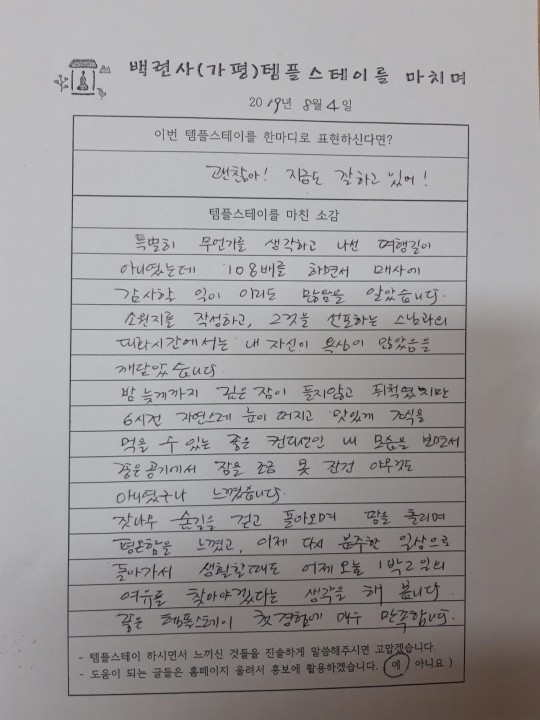 백련사(가평)템플스테이를 마치며
2019년 8월 4일
이번 템플스테이를 한마디로 표현하신다면?
괜찮아! 지금도 잘하고 있어!
템플스테이를 마친 소감
특별히 무언가를 생각하고 나선 여행길이
아니였는데 108배를 하면서 매사에
감사할 일이 이리도 많음을 알았습니다.
소원지를 작성하고, 그것을 선포하는 스님과의
시간에서는 내 자신이 욕심이 많았음을
깨달았습니다
밤 늦게까지 깊은 잠이 들지않고 뒤척였지만
6시전 자연스레 눈이 떠지고 맛있게 조식을
먹을 수 있는 좋은 컨디션인 내 모습을 보면서
좋은공기에서 잠을 조금 못 잔건 아무것도
아니였구나 느꼈습니다.
잣나무 숲길을 걷고 돌아오며 땀을 흘리며
평온함을 느꼈고, 이제 다시 분주한 일상으로
돌아가서 생활할때도 어제 오늘 1박2일의
여유를 찾아야겠다는 생각을 해 봅니다.
좋은 템플스테이 첫경험에 매우 만족합니다.
- 템플스테이 하시면서 느끼신 것들을 진솔하게 말씀해주시면 고맙겠습니다.
- 도움이 되는 글들은 홈페이지 올려서 홍보에 활용하겠습니다. ( 예 아니요 )